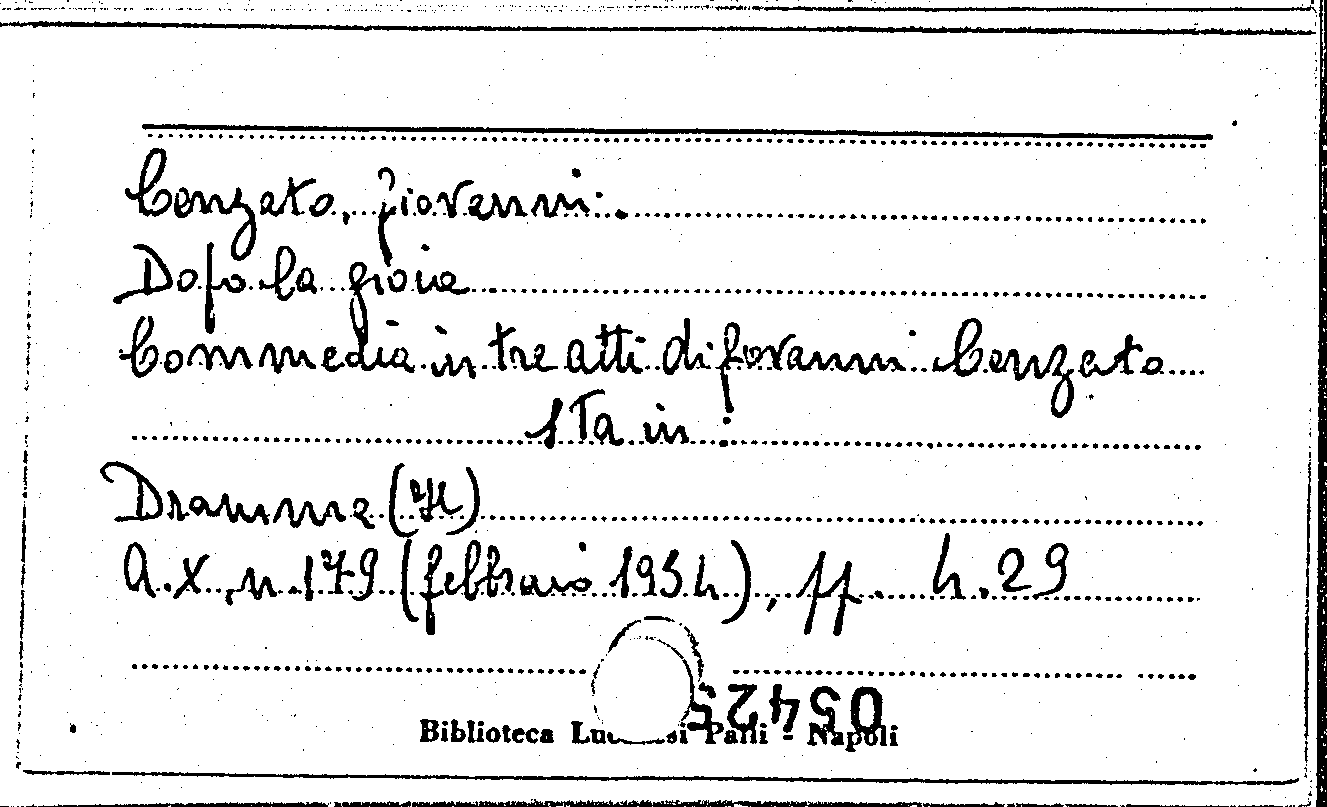 Cenzato, Giovanni.
Dopo la gioia
Commedia in tre atti di Giovanni Cenzato
Sta in:
Dramma (Il)
A. X, n. 179 (febbraio 1934), pp. 4.29
Biblioteca Lucchesi Palli - Napoli